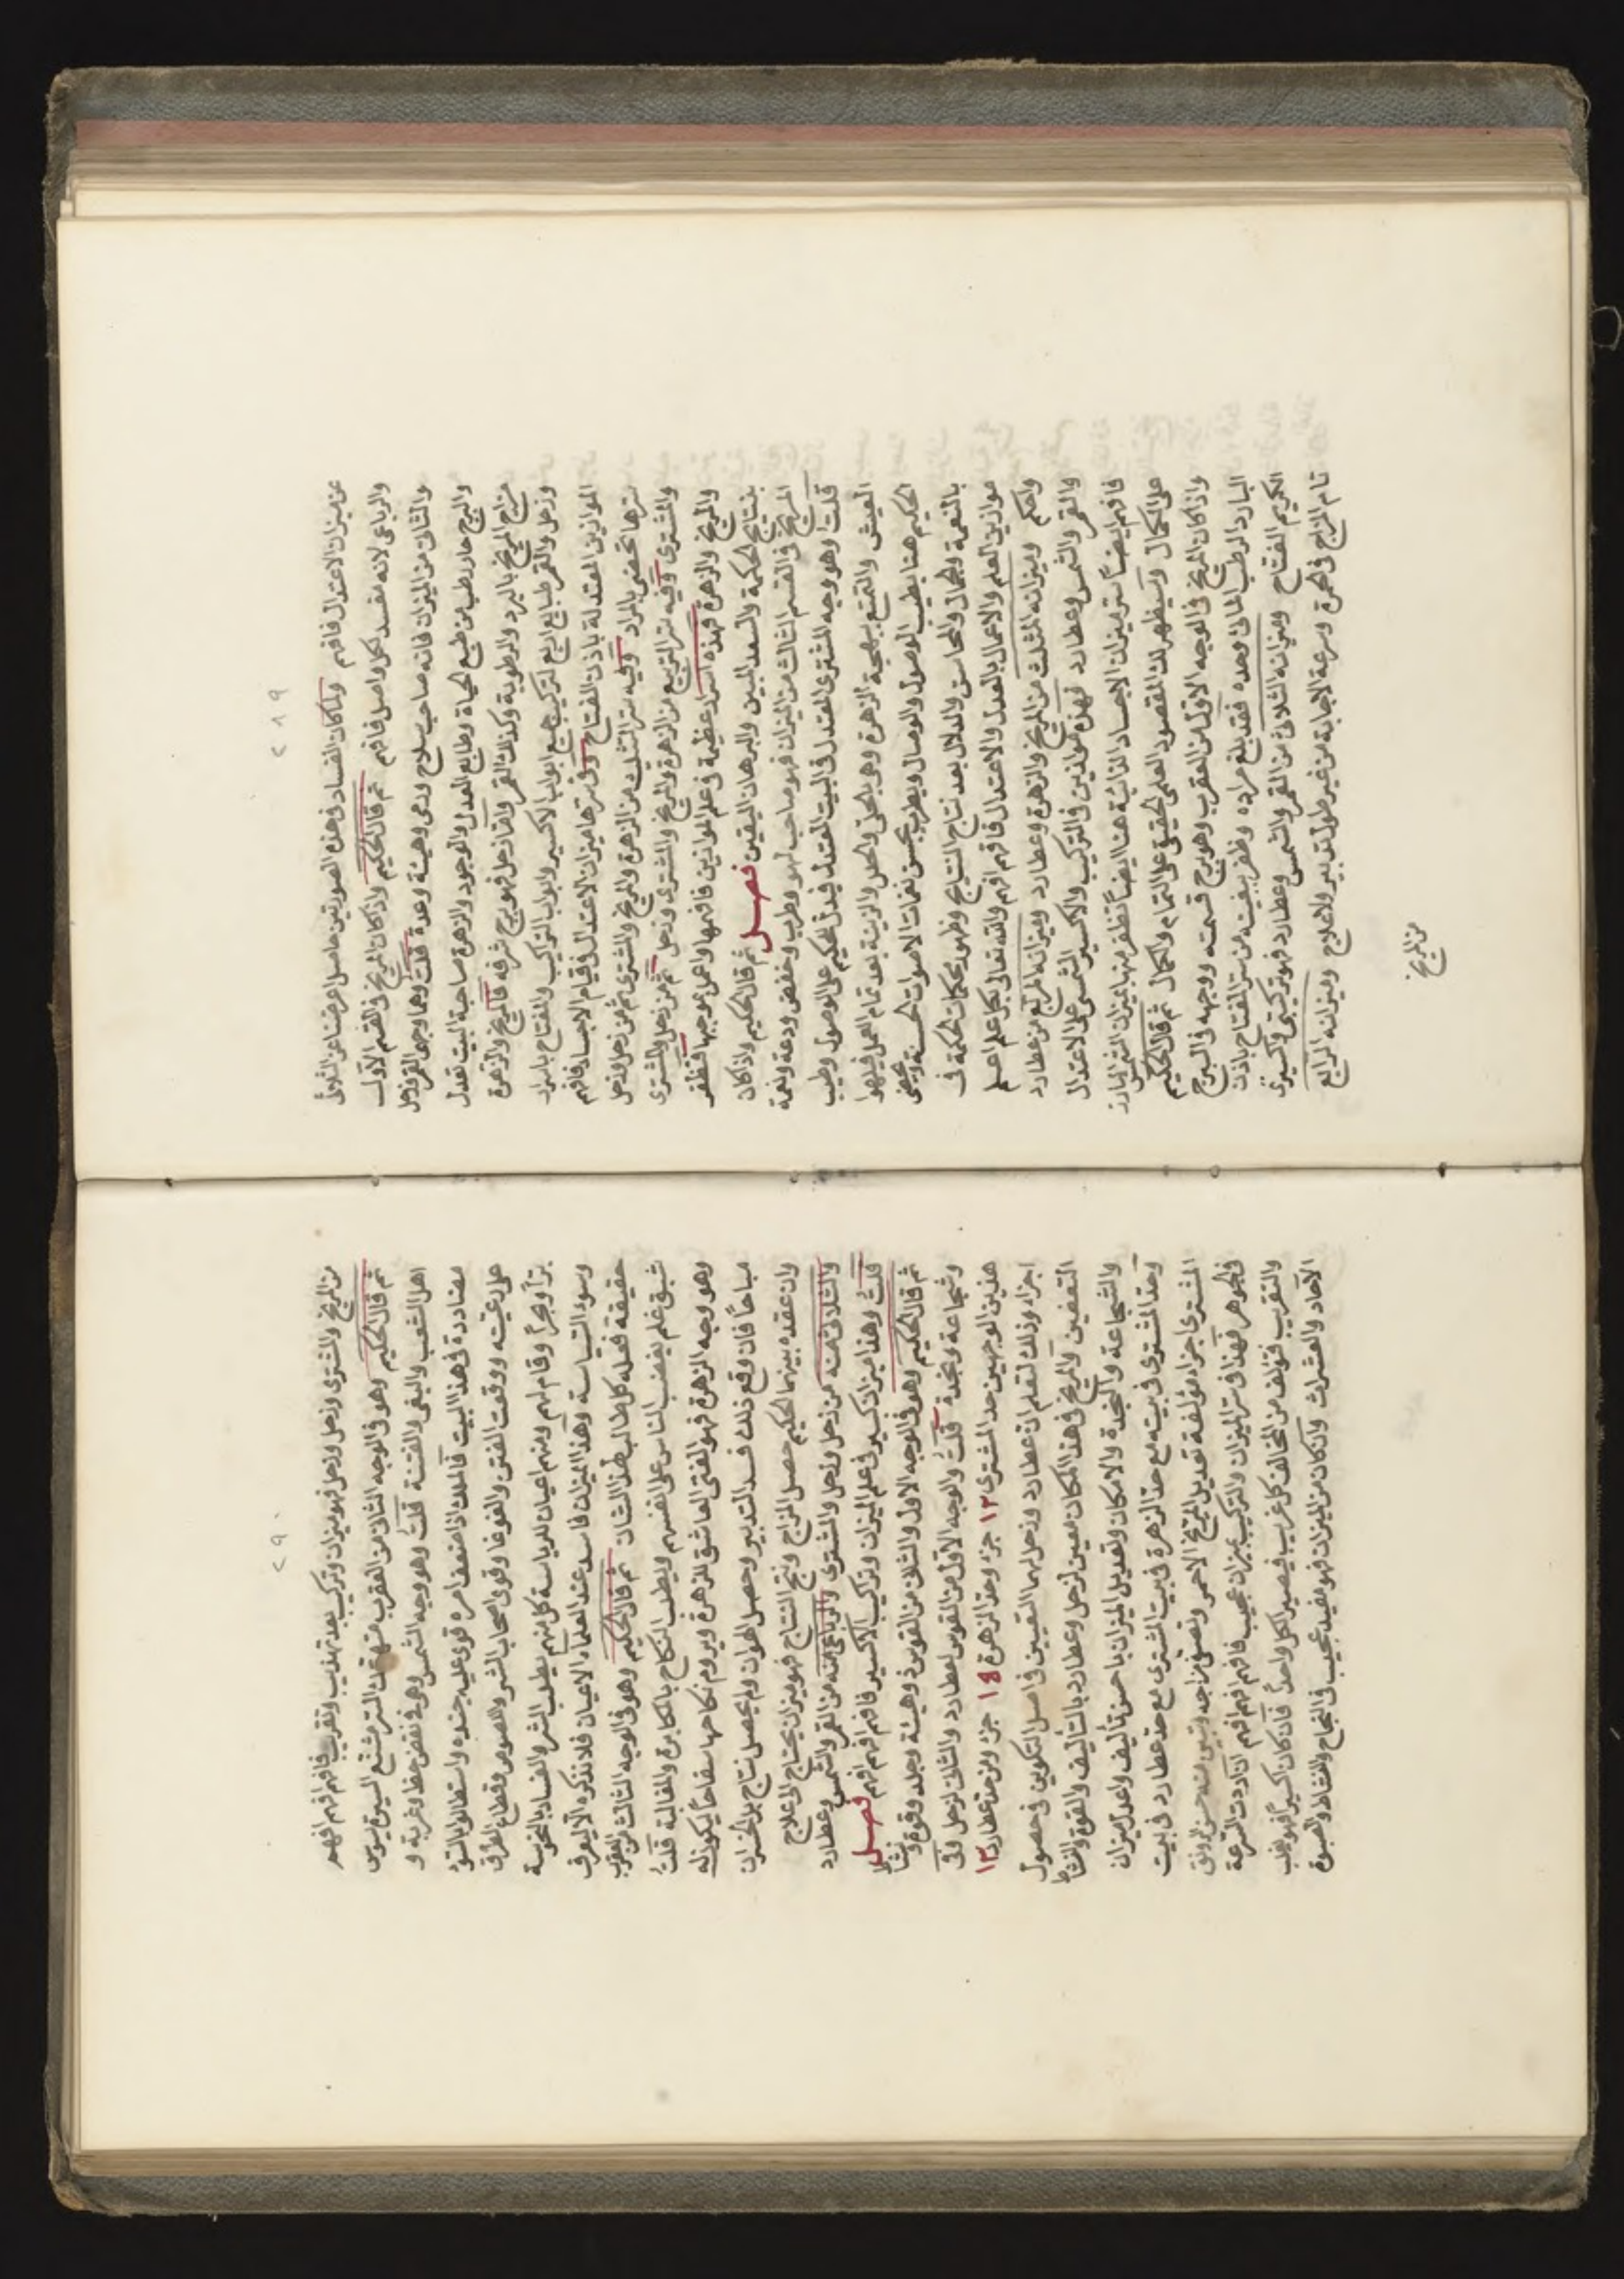 ٢٨٩
عن ميزان الاعتدال فافهم ولما كان الفساد في هذه الصورتين حاصل اعرضنا عن الثلاثي
والرباعي لانه مفسد لكل واصل فافهم ثم قال الحكيم واذا كان المريخ في القسم الاول
والثاني من الميزان فانه صاحب سلاح ودعي وهيئة وعدة قلت وهما وجهي القمر وزحل
والبرج حار رطب من طبع الحياة وطابع العدل والوجود والزهرة صاحبة البيت تعدل
مزاج المريخ بالبرد والرطوبة وكذلك القمر واما زحل فهو برج شرفه فالمريخ والزهرة
وزحل والقمر طبايع اربع لتركيب جميع ابواب الاكسير وابواب التراكيب والمفتاح باسرار
الموازين المعتدلة باذن الفتاح وفي سرها ميزان الاعتدال في قيام الاجساد فافهم
سرها تحضى بالمراد وفيه سر التثليث من الزهرة والمريخ والمشتري ثم من زحل وزحل
والمشتري وفيه سر التربيع من الزهرة والمريخ والمشتري وزحل ثم من زحل والمشتري
والمريخ والزهرة فهذه اسرار عظيمة في علم الموازين فافهمها واعمل بموجبها فتظفر
بنتايج الحكمة والسعد المبين والبرهان اليقين فصل ثم قال الحكيم واذا كان
المريخ في القسم الثالث من الميزان فهو صاحب لهو وطرب وخفض ودعة ونعمة
قلت وهو وجه المشتري المعتدل في البيت المعتدل فيدل الحكيم على الوصول وطيب
العيش والتمتع ببهجة الزهرة وهو بالحلي والحلل والزينة بعد تمام العمل فيلهوا
الحكيم هنا بطيب الوصول والوصال ويطرب بحسن نغمات الاصوات الحسنة ويحضى
بالنعمة والجمال والمحاسن والدلال بعد نتاج النتايج وظهور محكمات الحكمة في
موازين العلم والاعمال بالعدل والاعتدال فافهم افهم والله تعالى بكل علم اعلم
واحكم وميزانه المثلث من المريخ والزهرة وعطارد وميزانه المربع من عطارد
والقمر والشمس وعطارد فهذه موازين في التركيب والاكسير الشمسي على الاعتدال
فافهم ايضاً سر ميزان الاجساد الذائبة هنا ايضاً تظفر منها بميزان الشمس البارز
على الكمال وسيظهر لك المقصود العلمي الحقيقي على التمام والكمال ثم قال الحكيم
واذا كان المريخ في الوجه الاول من العقرب وهو برج قسمته ووجهه في البرج
البارد الرطب المائي وحده فقد بلغ مراده وظفر ببغيته من سر المفتاح باذن
الكريم الفتاح وميزانه الثلاثي من القمر والشمس وعطارد فهو تركيبي واكسيري
تام المزاج في الحمرة وسرعة الاجابة من غير طول تدبير ولا علاج وميزانه الرابع
من المريخ
٢٩٠
من المريخ والمشتري وزحل وزحل فهو ميزان وتركيب بعد تهذيب وتقريب فافهم افهم افهم
ثم قال الحكيم وهو في الوجه الثاني من العقرب متهتك الستر مشنع السيرة يسوس
اهل الشعب والبغي والفتنة قلت وهو وجه الشمس وهو في نقص حظ وغربة و
مضاددة في هذا البيت فالملك اذا ضعف امره قوي عليه جنده واستطالوا بالسوء
على رعيته ووقعت الفتن والغوغا وقوي اصحاب الشر واللصوص وقطاع الطرق
براً وبحراً وقام لهم ومنهم اعيان للرياسة كل منهم يطلب الشر والفساد بالنحوسة
وسوء السياسة وهذا الميزان فاسد عند العلماء الاعيان فلا نذكره الا ليعرف
حقيقة فعله كل طالب لهذا الشان ثم قال الحكيم وهو في الوجه الثالث من العقرب
شبق غلم يغضب الناس على انفسهم ويطلب النكاح بالمكابرة والمغالبة قلت
وهو وجه الزهرة فهو الفتى العاشق للزهرة ويروم نكاحها سفاحاً ليكون له
مباحاً فان وقع ذلك فسد التدبير وحصل الهوان ولم يحصل نتاج بل الخسران
وان عقده بينهما الحكيم حصل المزاج ونتج النتاج فهو ميزان يحتاج الى علاج
والثلاثي منه من زحل وزحل والمشتري والرباعي منه من القمر والشمس وعطارد
قلت وهذا ميزان كسير في علم الميزان وتراكيب الاكسير فافهم افهم افهم فصل
ثم قال الحكيم وهو في الوجه الاول والثاني من القوس ذو هيئة وجلد وقوة ونشاط
وشجاعة ونجدة قلت والوجه الاول من القوس لعطارد والثاني لزحل وفي
هذين الوجهين حد المشتري ١٢ جزء وحد الزهرة ١٨ جزء ومن حد عطارد ١٣
اجزاء وذلك لتعلم ان عطارد وزحل لهما النفسين في اصل التكوين في حصول
التعفين والمريخ في هذا المكان معين لزحل وعطارد بالتأليف والقوة والنشاط
والشجاعة والنجدة والامكان وتعديل الميزان باحسن تأليف واعدل ميزان
وحد المشتري في بيته مع حد الزهرة في بيت المشتري مع حد عطارد في بيت
المشتري اجزاء مؤلفة تعديل المريخ الاحمر وتصفي مزاجه وتبين منه حسن الرونق
والجوهر فهذا في سر الميزان والتركيب ميزان عجيب فافهم افهم افهم ان اردت السرعة
والتقريب فتؤلف من المخالف كل غريب فيصير الكل واحداً فان كان اكسيراً فهو يغلب
الآحاد والعشرات وان كان من الميزان فهو مفيد عجيب في النجاح والنشاط والصبوة